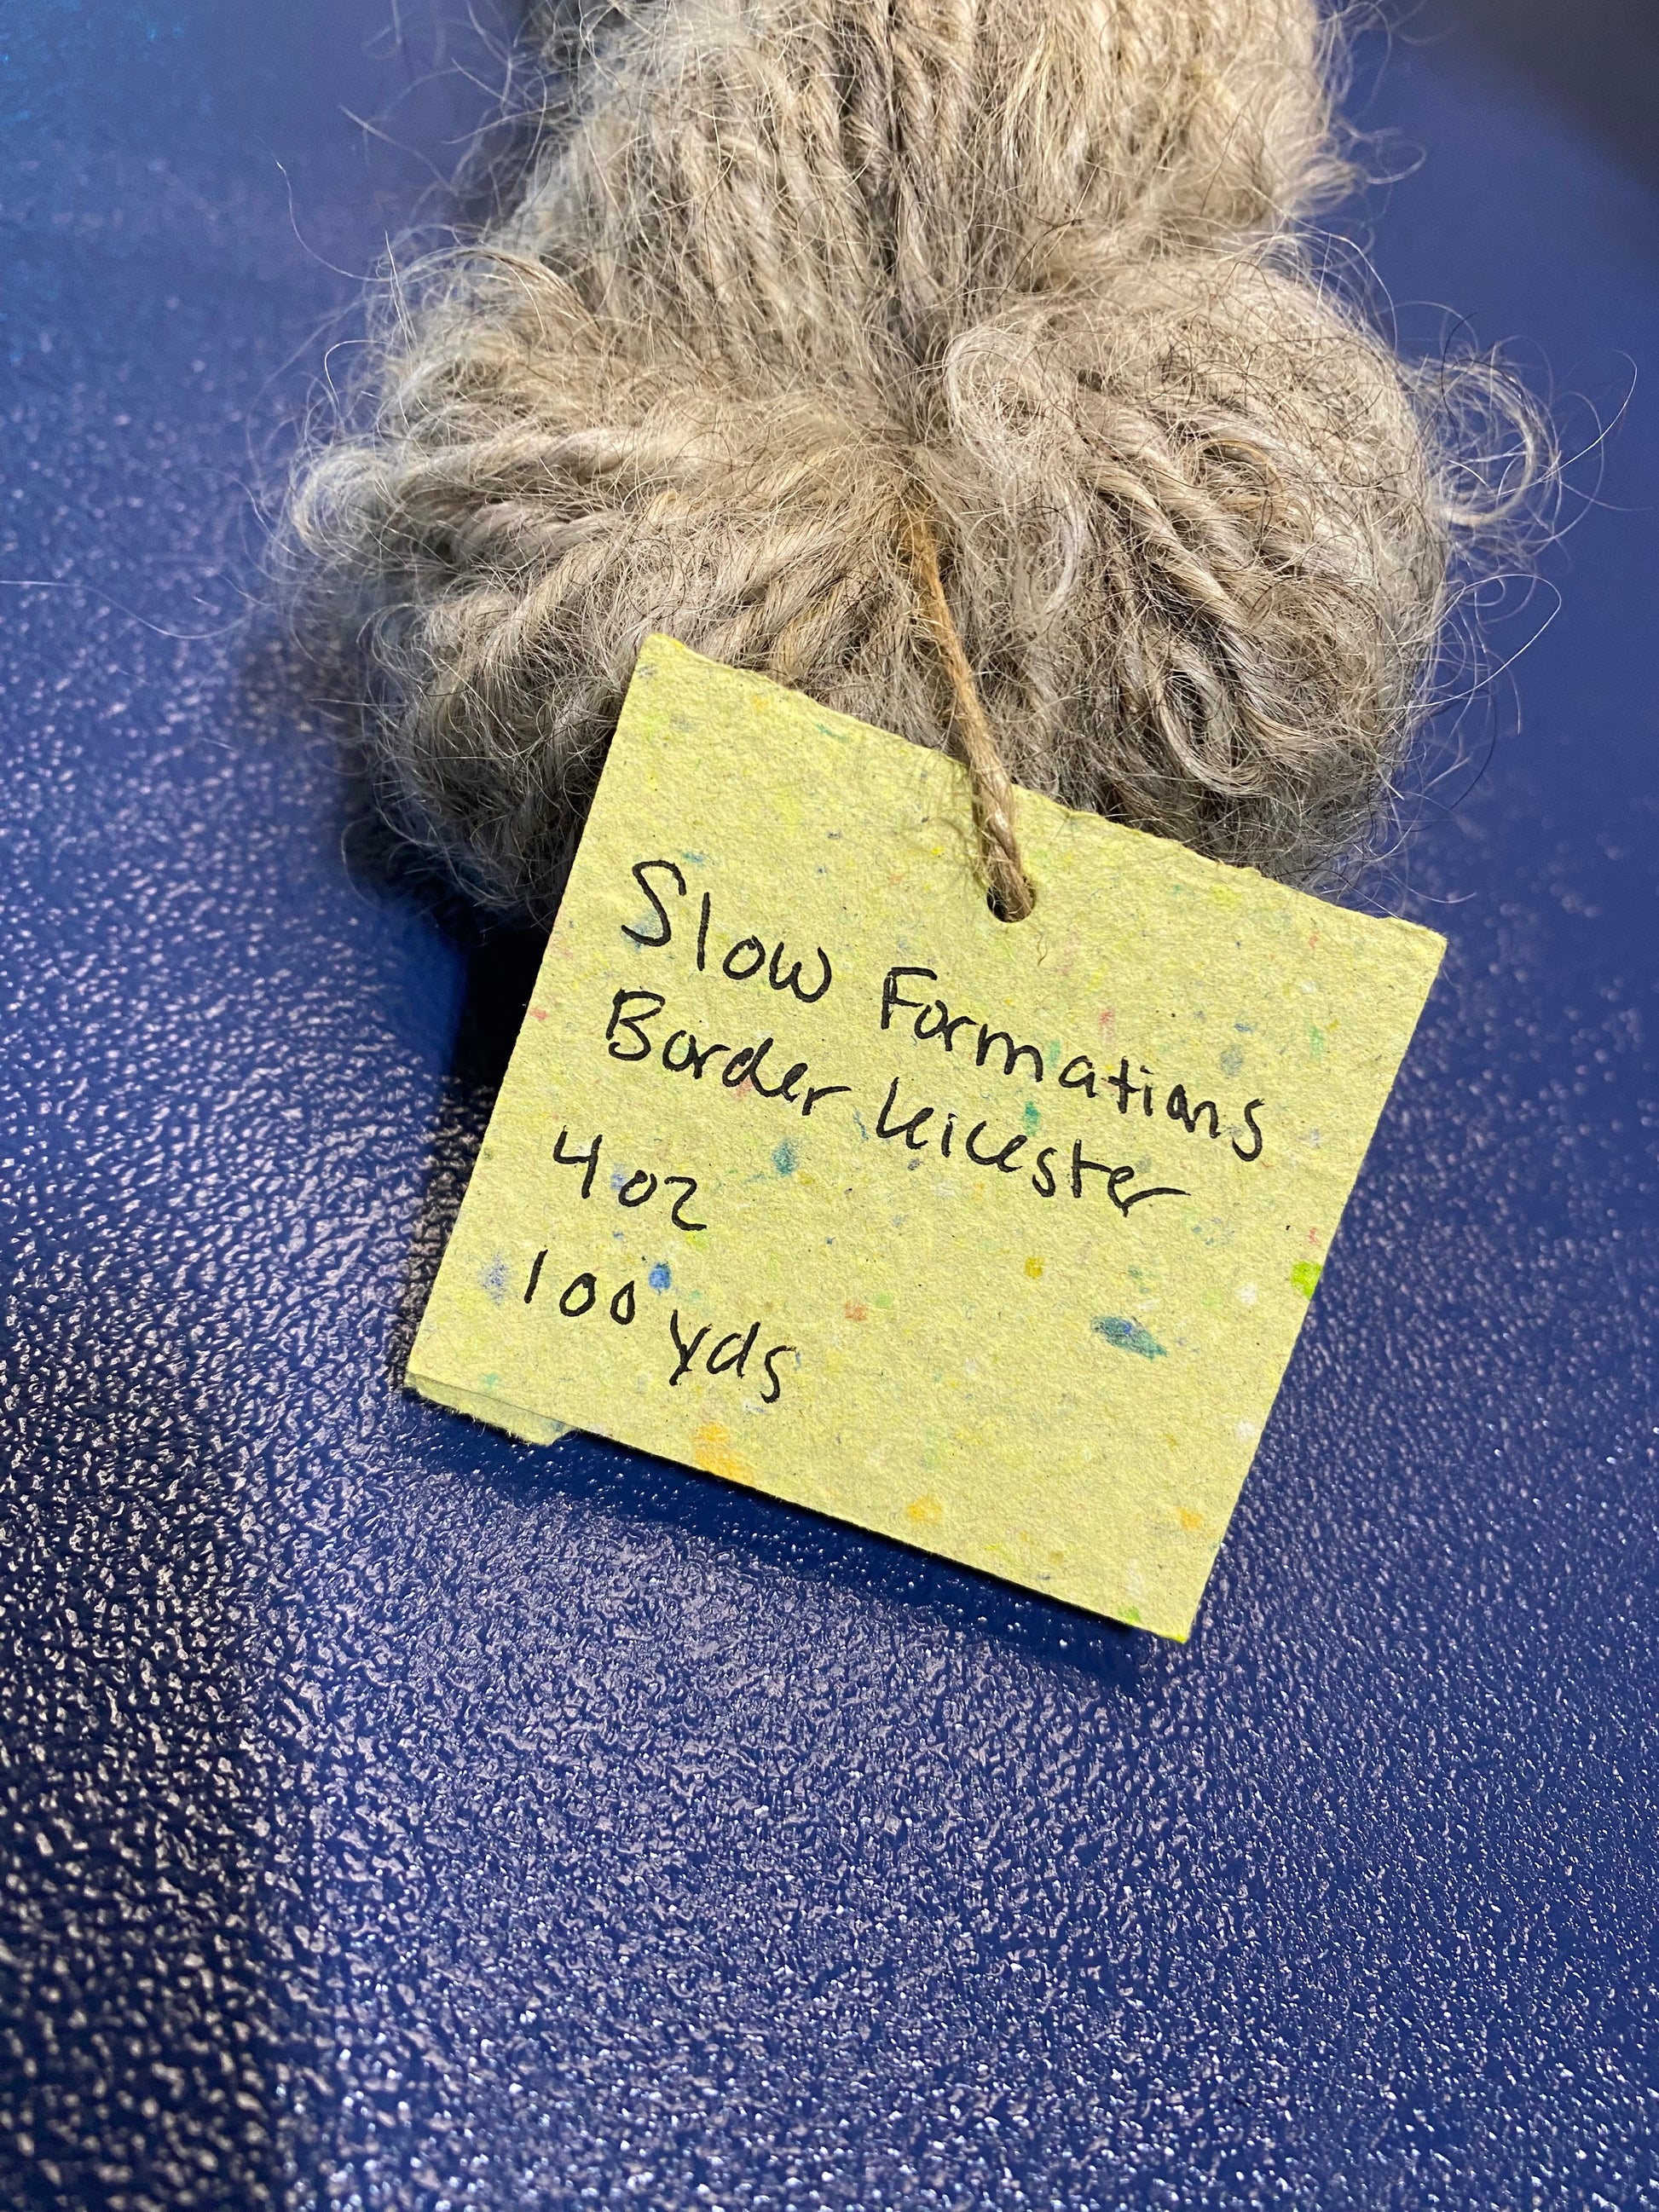 Slow Formations
Border Leicester
4 oz
100 yds